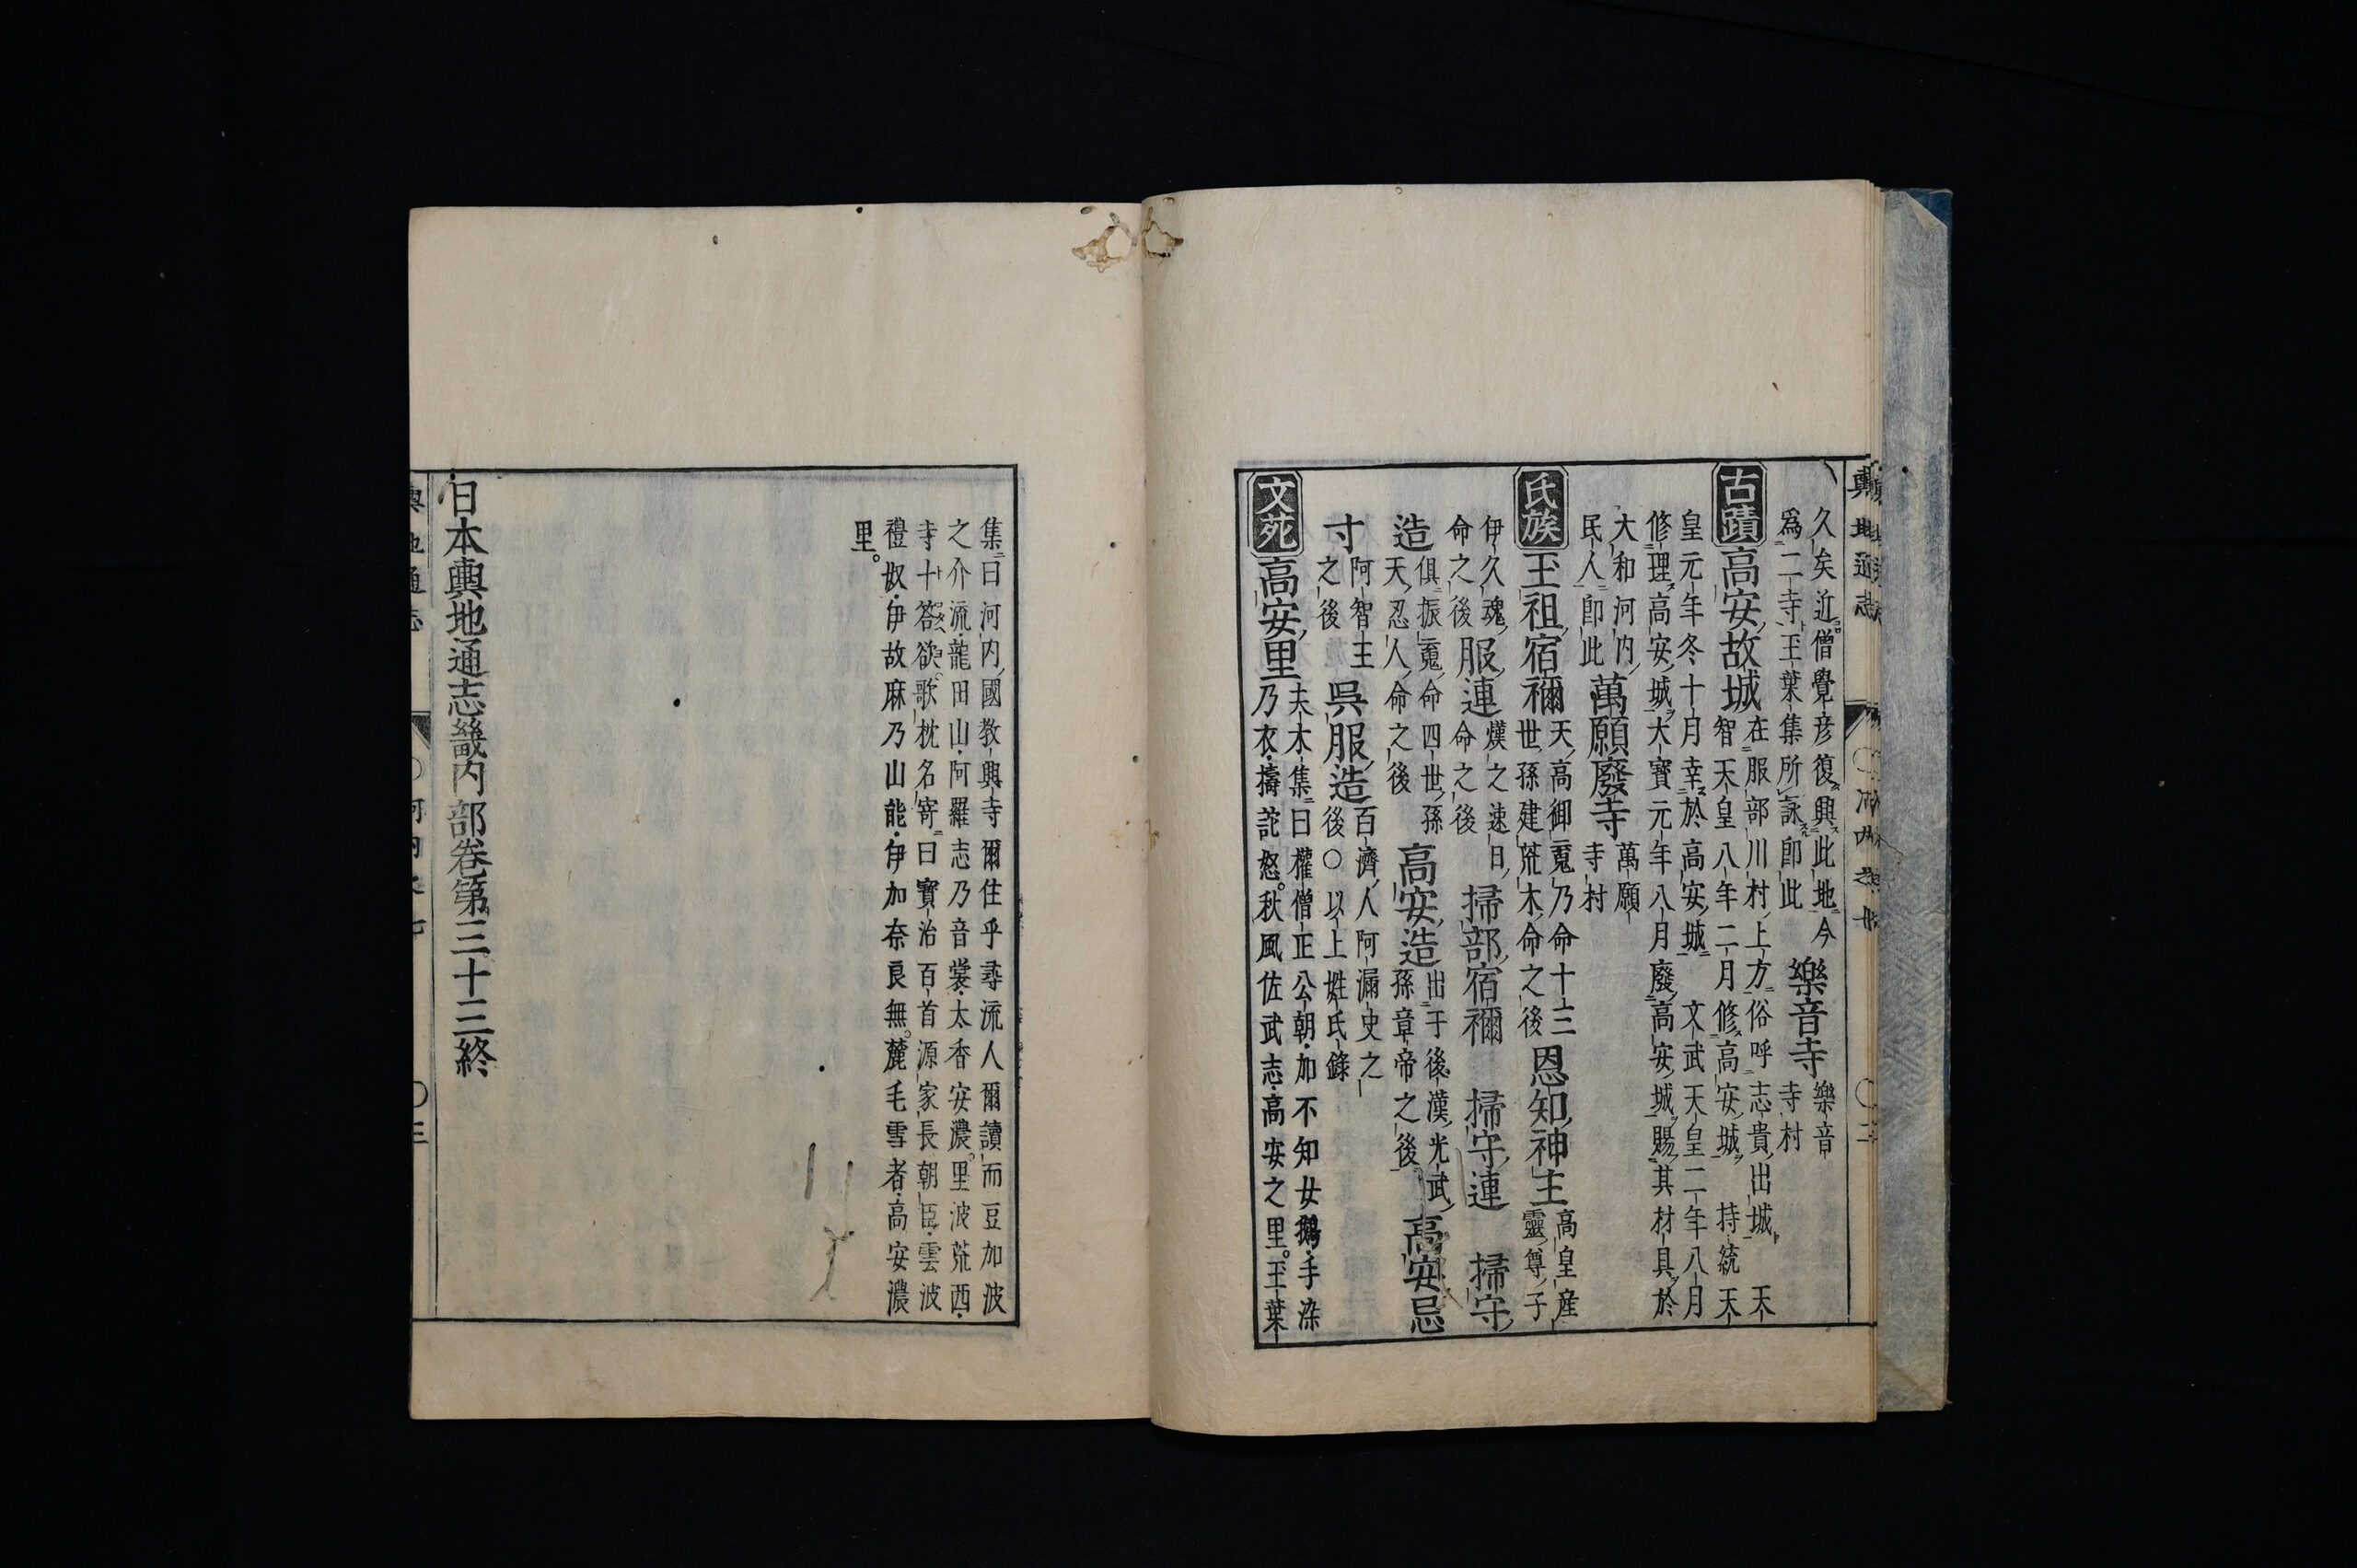 久矣近僧覺彦復興此地今
爲二寺玉葉集所詠即此
樂音寺
樂音
寺村
古蹟
高安故城
在服部川村上方俗呼志貴出城天
智天皇八年二月修高安城持統天
皇元年冬十月幸於高安城文武天皇二年八月
修理高安城大寶元年八月廢高安城賜其材具於
大和河内
民人即此
萬願廢寺
萬願
寺村
氏族
玉祖宿禰
天高御䰟乃命十三
世孫建荒木命之後
恩知神主
高皇産
靈尊子
伊久魂
命之後
服連
熯之速日
命之後
掃部宿禰
掃守連
掃守
造
倶振䰟命四世孫
天忍人命之後
高安造
出于後漢光武
孫章帝之後
高安忌
寸
阿智主
之後
呉服造
百濟人阿漏史之
後○以上姓氏錄
文苑
高安里
夫木集曰權僧正公朝加不知女鵝手染
乃衣擣詫怒秋風佐武志高安之里玉葉
集曰河内國教興寺爾住乎尋流人爾讀而豆加波
之介流龍田山阿羅志乃音裳太香安濃里波荒西
寺十答欲歌枕名寄曰寶治百首源家長朝臣雲波
禮奴伊故麻乃山能伊加奈良無麓毛雪者高安濃
里
日本輿地通志畿内部卷第三十三終